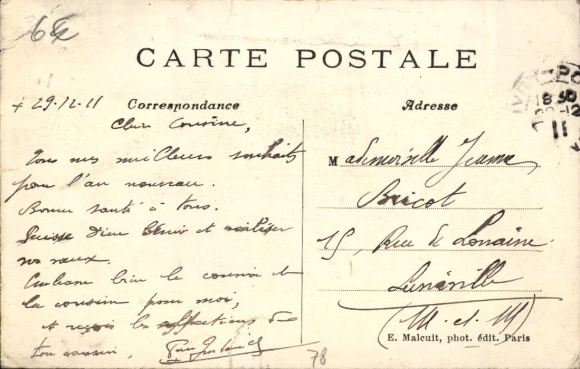 6
CARTE POSTALE
+ 29-12-11
Correspondance
Adresse
18 30
12
11
Chère Cousine,
Tous mes meilleurs souhaits
pour l'an nouveau.
Bonne santé à tous.
Puisse Dieu bénir et réaliser
nos vœux.
Embrasse bien le cousin et
la cousine pour moi,
et reçois les affections de
ton cousin,
Mademoiselle Jeanne
Bricot
15, Rue de Lorraine
Lunéville
(M-et-M)
E. Malcuit, phot. édit. Paris
78